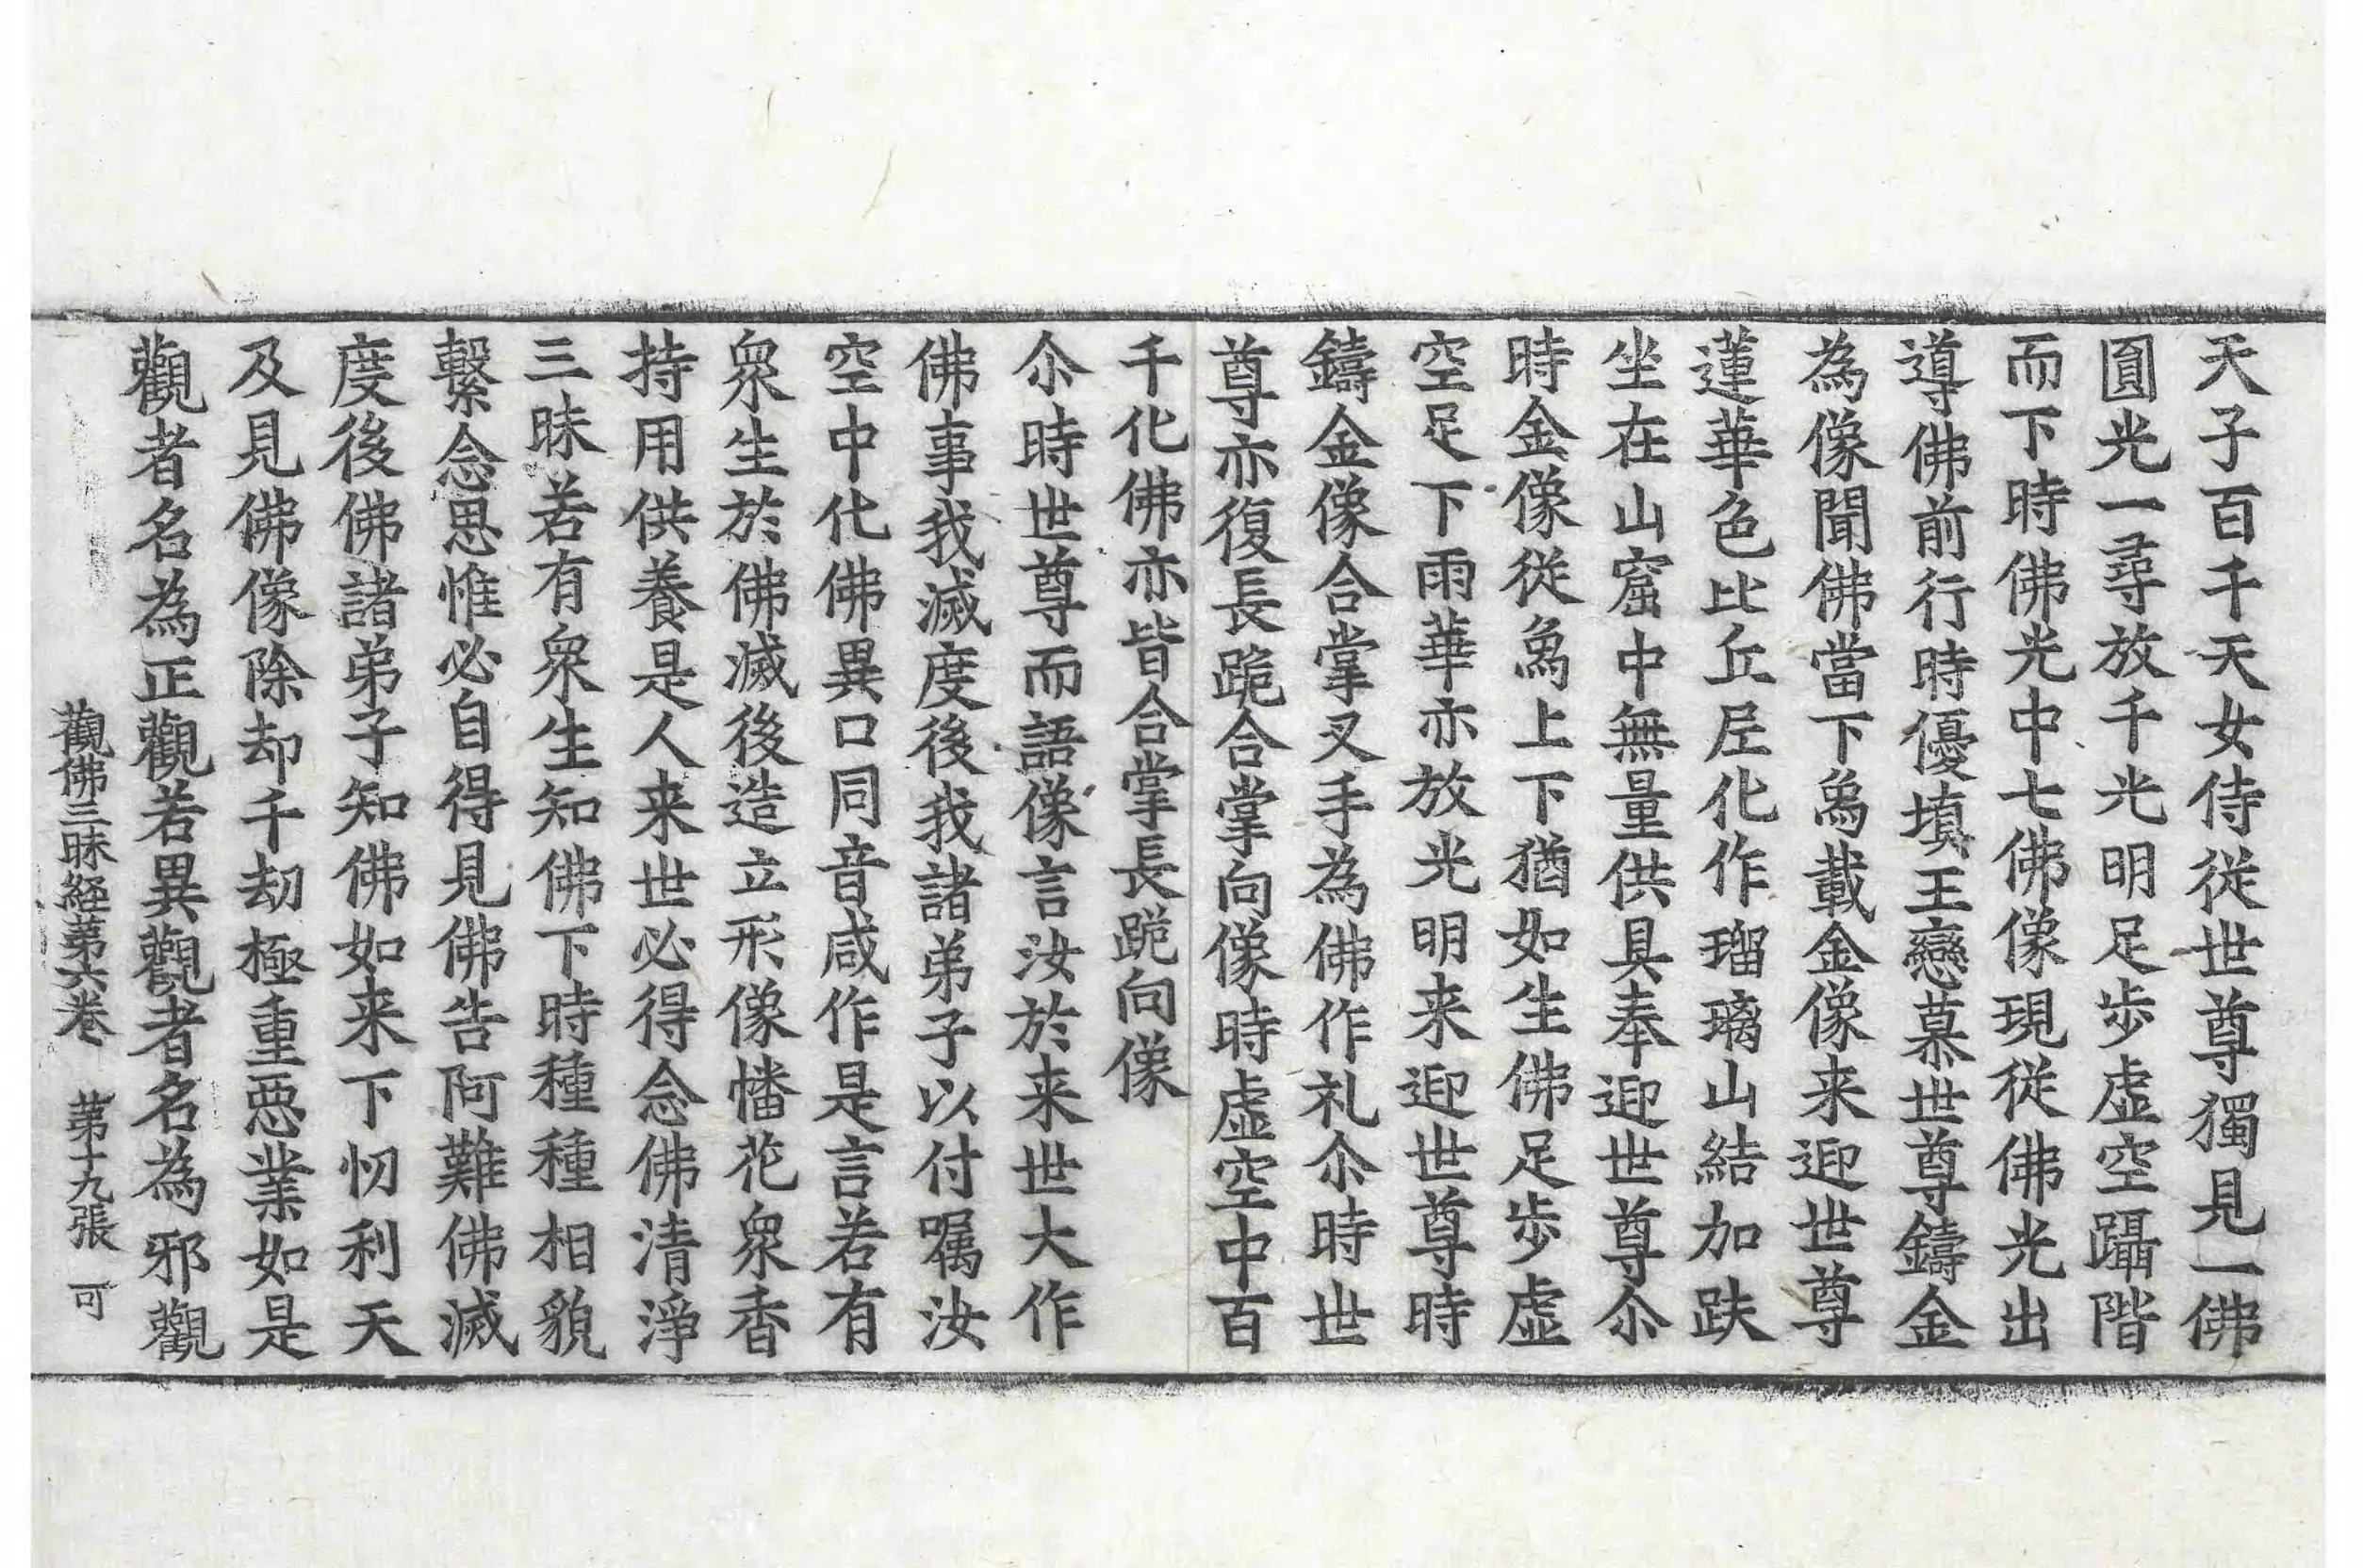 天子百千天女侍從世尊獨見一佛
圓光一尋放千光明足步虛空躡階
而下時佛光中七佛像現從佛光出
導佛前行時優塡王戀慕世尊鑄金
為像聞佛當下烏載金像来迎世尊
蓮華色比丘尼化作瑠璃山結加趺
坐在山窟中無量供具奉迎世尊尒
時金像從烏上下猶如生佛足步虛
空足下雨華亦放光明来迎世尊時
鑄金像合掌叉手為佛作礼尒時世
尊亦復長跪合掌向像時虛空中百
千化佛亦皆合掌長跪向像
尒時世尊而語像言汝於来世大作
佛事我滅度後我諸弟子以付嘱汝
空中化佛異口同音咸作是言若有
衆生於佛滅後造立形像幡花衆香
持用供養是人来世必得念佛清淨
三昧若有衆生知佛下時種種相貌
繫念思惟必自得見佛告阿難佛滅
度後佛諸弟子知佛如来下忉利天
及見佛像除却千劫極重惡業如是
觀者名為正觀若異觀者名為邪觀
觀佛三昧経第六卷 第十九張 可